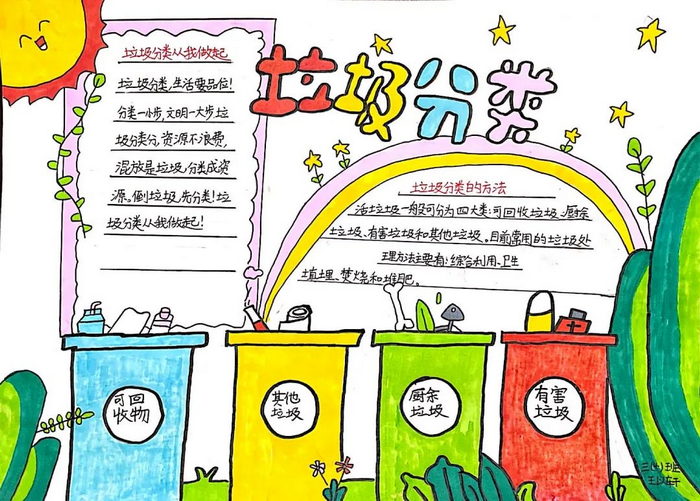 垃圾分类
垃圾分类从我做起
垃圾分类,生活要品位!
分类一小步,文明一大步垃
圾分类分,资源不浪费,
混放是垃圾,分类成资
源。倒垃圾,先分类!垃
圾分类从我做起!
垃圾分类的方法
活垃圾一般可分为四大类:可回收垃圾、厨余
垃圾、有害垃圾和其他垃圾。目前常用的垃圾处
理方法主要有:综合利用、卫生
填埋、焚烧和堆肥。
可回
收物
其他
垃圾
厨余
垃圾
有害
垃圾
三(七)班